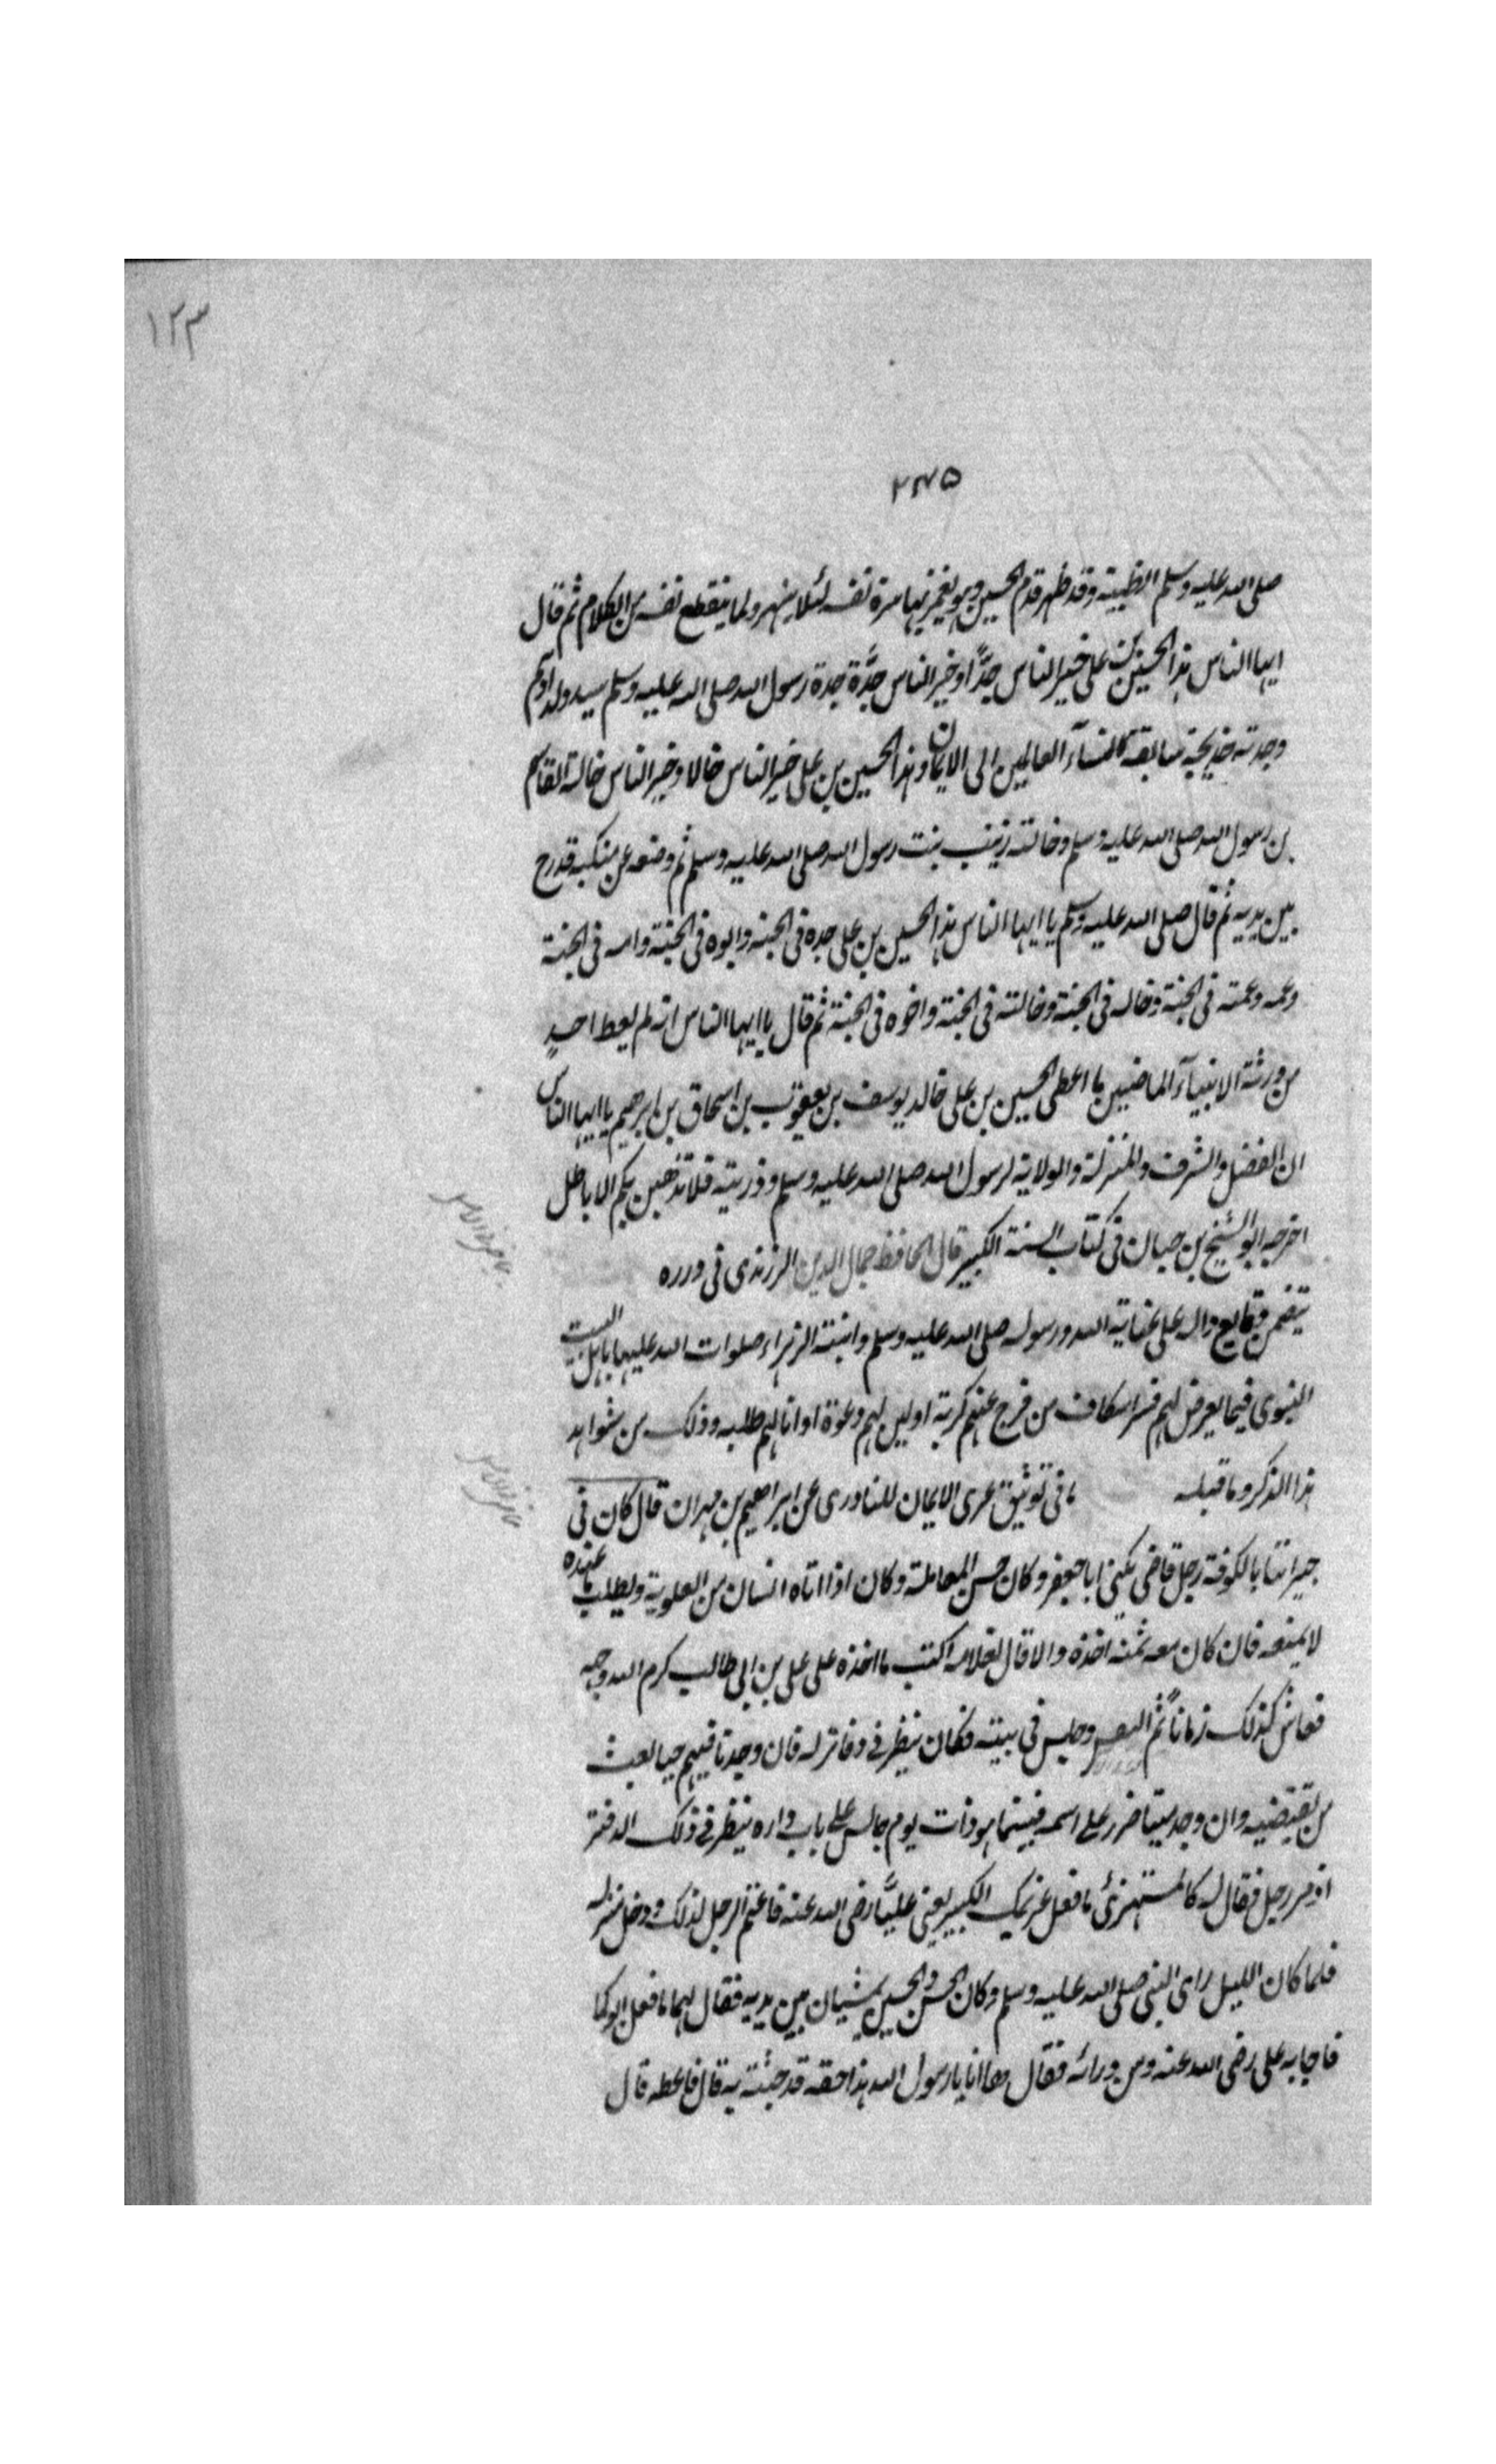 ١٢٣
٢٤٥
صلى الله عليه وسلم الطيبة وقد ظهر قدم الحسين وهو يغمزبها سرة نفسه لئلا ينهر ولما ينقطع نفسه من الكلام ثم قال
ايها الناس هذا الحسين بن على خير الناس جدًّا وخير الناس جدَّة جدة رسول الله صلى الله عليه وسلم سيد ولد آدم
وجدته خديجة سابقة نسآء العالمين الى الايمان وهذا الحسين بن على خير الناس خالا وخير الناس خالة القاسم
بن رسول الله صلى الله عليه وسلم وخالته زينب بنت رسول الله صلى الله عليه وسلم ثم وضعه عن منكبه قدرج
بين يديه ثم قال صلى الله عليه وسلم يا ايها الناس هذا الحسين بن على جده فى الجنة وابوه فى الجنة وامه فى الجنة
وعمه وعمته فى الجنة وخاله فى الجنة وخالته فى الجنة واخوه فى الجنة ثم قال يا ايها الناس انه لم يعط احدٍ
من ورثة الانبيآء الماضيين ما اعطى الحسين بن على خالد يوسف بن يعقوب بن اسحاق بن ابرهيم يا ايها الناس
ان الفضل والشرف والمنزلة والولاية لرسول الله صلى الله عليه وسلم وذريته فلا تذهبن بكم الاباطل
اخرجه ابو الشيخ بن حبان فى كتاب السنة الكبير قال الحافظ جمال الدين الزرندى فى درره
يتضمن وقايع دال على عناية الله ورسوله صلى الله عليه وسلم وابنته الزهراء صلوات الله عليها باهل البيت
النبوى فيما يعرض لهم من فرج عنهم كربة اوليى لهم دعوة او انالهم طلبه وذلك من شواهد
هذا الذكر وما قبله ما فى توثيق عرى الايمان للبارزى عن ابراهيم بن مهران قال كان فى
جيراننا بالكوفة رجل قاضى يكنى ابا جعفر وكان حسن المعاملة وكان اذا اتاه انسان من العلوية ويطلب ما عنده
لا يمنعه فان كان معه ثمنه اخذه والا قال لغلامه اكتب ما اخذه على على بن ابى طالب كرم الله وجهه
فعاش كذلك زماناً ثم وجلس فى بيته فكان ينظر فى دفاتر له فان وجد فيهم حيا بعث
من يقتضيه وان وجد ميتا ضرر على اسمه فبينما هو ذات يوم جالس على باب داره ينظر فى ذلك الدفتر
اذ مر رجل فقال له كالمستهزئ ما فعل غريمك الكبير يعنى عليًّا رضى الله عنه فاغتم الرجل لذلك ودخل منزله
فلما كان الليل راى النبى صلى الله عليه وسلم وكان الحسن والحسين يمشيان بين يديه فقال لهما ما فعل ابوكما
فاجابه على رضى الله عنه ومن ورائه فقال ها انا يا رسول الله هذا حقه قد جئته به قال فاعطه قال